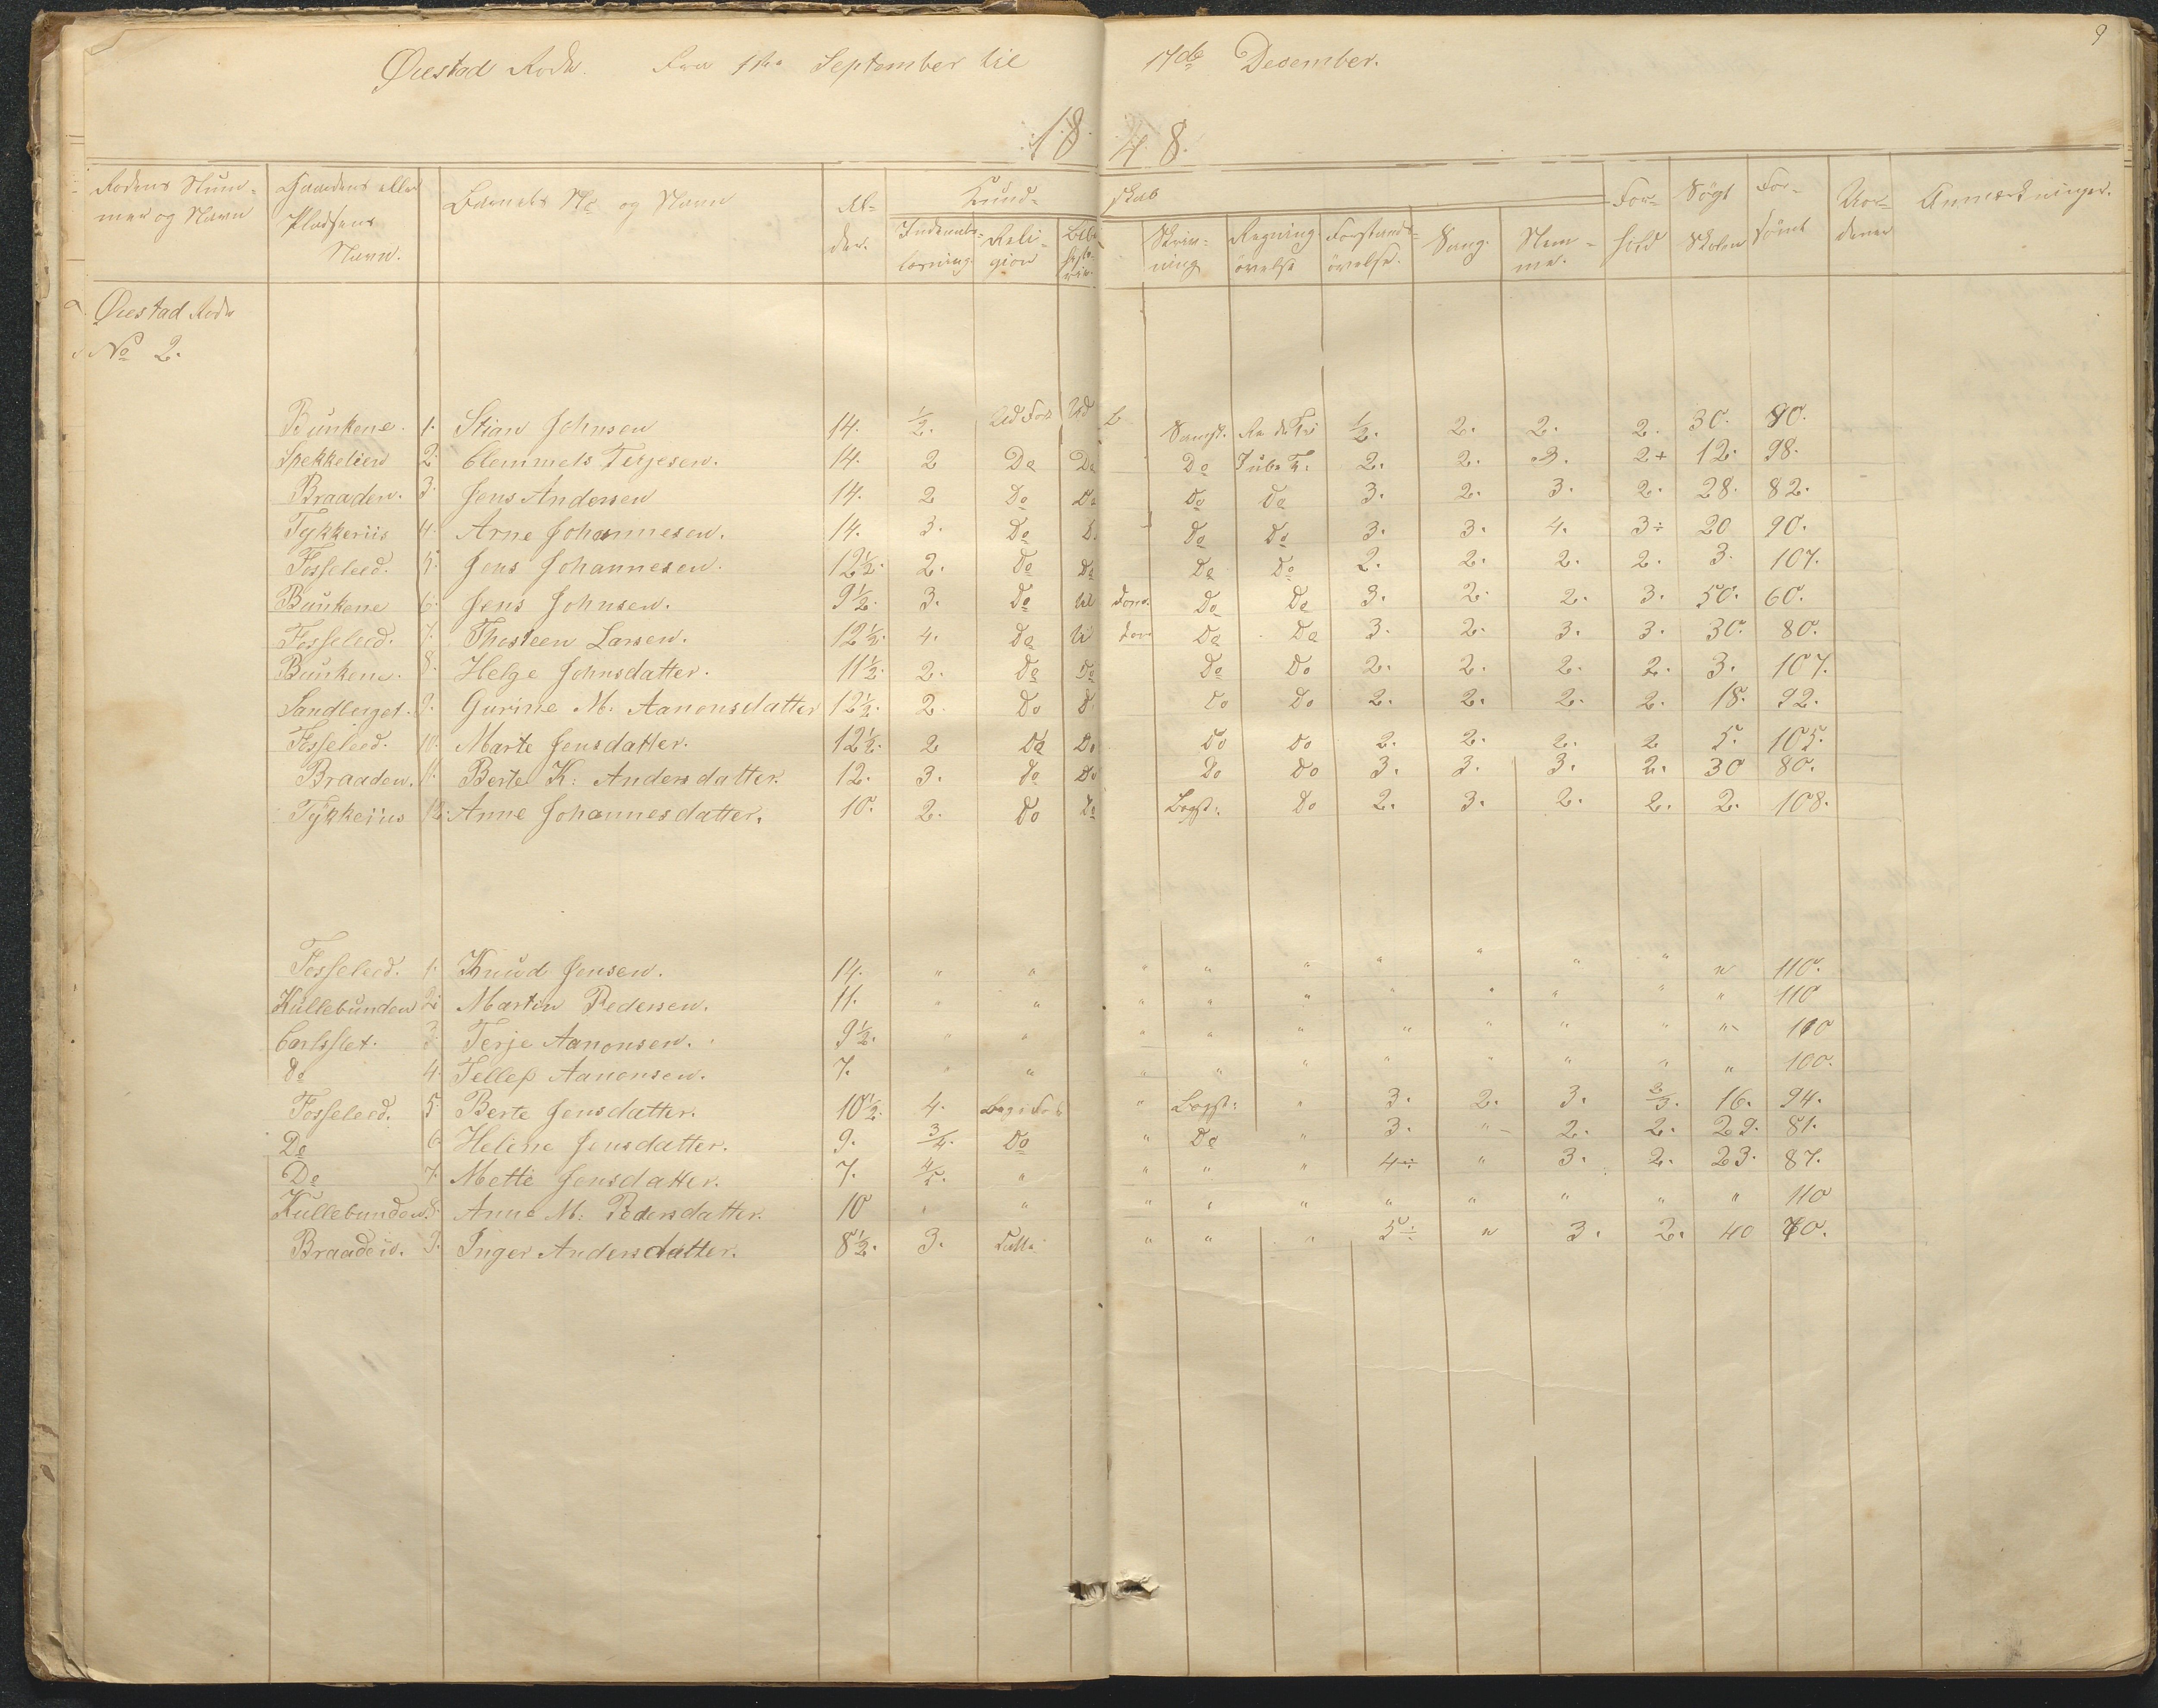 9
Øiestad Rode. Fra 1ste September til 17de Desember.
18 48.
Rodens Num= mer og Navn | Gaardens eller Pladsens Navn. | Barnets No og Navn | Al= der. | Kund= skab | For= hold | Søgt Skolen | For= sømt | Anmærkninger.
Indenads= læsning. | Reli= gion | Skriv= ning | Regning øvelse | Forstands= øvelse. | Sang. | Nem= me.
Øiestad Rode
No 2.
Bunkene. 1. Stian Johnsen 14. ½. Ud For Ud ½. 2. 2. 2. 30. 80.
Spekkelien 2. Clemmets Terjesen. 14. 2 Do Do Do 2. 2. 3. 2+ 12. 98.
Braaden. 3. Jens Andersen 14. 2 Do Do Do Do 3. 2. 3. 2. 28. 82.
Tykkeriis 4. Arne Johannesen. 14. 3. Do D. Do Do 3. 3. 4. 3÷ 20 90.
Fosseleed. 5. Jens Johannesen. 12½. 2. Do Do Do Do 2. 2. 2. 2. 3. 107.
Bunkene 6. Jens Johnsen. 9½. 3. Do Do Do 3. 2. 2. 3. 50. 60.
Fosseleed. 7. Thosteen Larsen. 12½. 4. Do Do Do 3. 2. 3. 3. 30. 80.
Bunkene. 8. Helge Johnsdatter. 11½. 2. Do Do Do Do 2. 2. 2. 2. 3. 107.
Sandberget. 9. Gurine M. Aanonsdatter 12½. 2. Do D. Do Do 2. 2. 2. 2. 18. 92.
Fosseleed. 10. Marte Jensdatter. 12½. 2 Do Do Do Do 2. 2. 2. 2 5. 105.
Braaden. 11. Berte K: Andersdatter. 12. 3. Do Do Do Do 3. 3. 3. 2. 30 80.
Tykkeriis 12. Anne Johannesdatter. 10. 2. Do Do Bogst. Do 2. 3. 2. 2. 2. 108.
Fosseleed. 1. Knud Jensen. 14. " " " " " " " " " " 110.
Kullebunden 2. Martin Pedersen. 11. " " " " " " " " " " 110
Carlsflet. 3. Terje Aanonsen. 9½. " " " " " " " " " " 110
Do 4. Tellef Aanonsen. 7. " " " " " " " " " " 100.
Fosseleed. 5 Berte Jensdatter. 10½. 4. " Bogst: " 3. 2. 3. 2/3. 16. 94.
Do 6. Heline Jensdatter. 9. 3/4. Do " Do " 3. " 2. 2. 29. 81.
Do 7. Mette Jensdatter. 7. 4/5. " " " " 4÷ " 3. 2. 23. 87.
Kullebunden. 8. Anne M: Pedersdatter. 10 " " " " " " " " " " 110
Braaden. 9. Inger Andersdatter. 8½. 3. " " " 5÷ " 3. 2. 40 70.